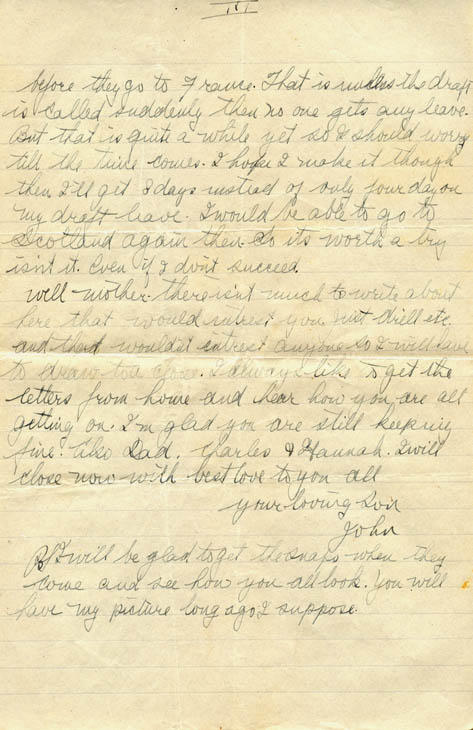 III
before they go to France. That is unless the draft
is called suddenly then no one gets any leave.
But that is quite a while yet so I should worry
till the time comes. I hope I make it though
then I'll get 8 days instead of only four day on
my draft leave. I would be able to go to
Scotland again then. So its worth a try
isn't it. Even if I don't succeed.
Well mother there isn't much to write about
here that would intrest you just drill etc.
and that wouldnt intrest anyone so I will have
to draw to a close. I always like to get the
letters from home and hear how you are all
getting on. I'm glad you are still keeping
fine. Also Dad, Charles & Hannah. I will
close now with best love to you all
your loving Son
John
PS I will be glad to get the snaps when they
come and see how you all look. You will
have my picture long ago I suppose.